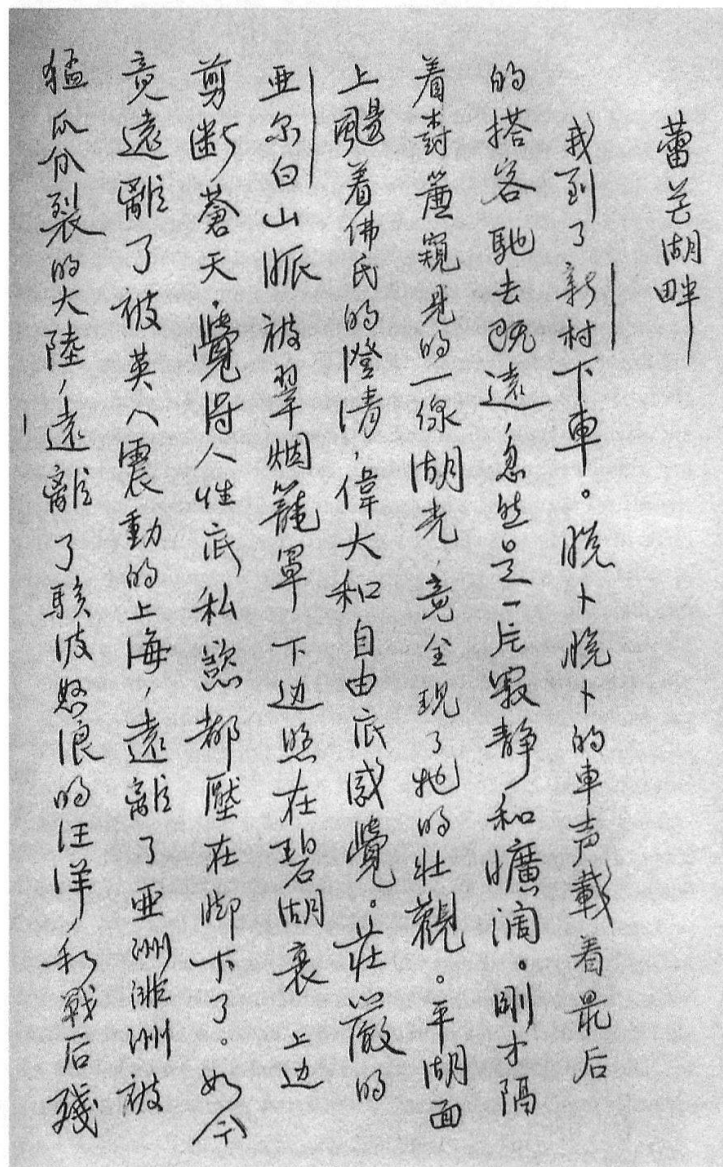 蕾芒湖畔
我到了新村下車。晥卜晥卜的車声載着最后
的搭客馳去既遠，忽然是一片寂静和曠濶。剛才隔
着對簾窺見的一線湖光，竟全現了牠的壯觀。平湖面
上颺着佛氏的澄清，偉大和自由底感覺。莊嚴的
亜尔白山脈被翠烟籠罩下边照在碧湖裏上边
剪断蒼天，覺得人性底私慾都壓在脚下了。如今
竟遠離了被英人震動的上海，遠離了亜洲非洲被
猛爪分裂的大陸，遠離了駭波怒浪的汪洋和戰后殘